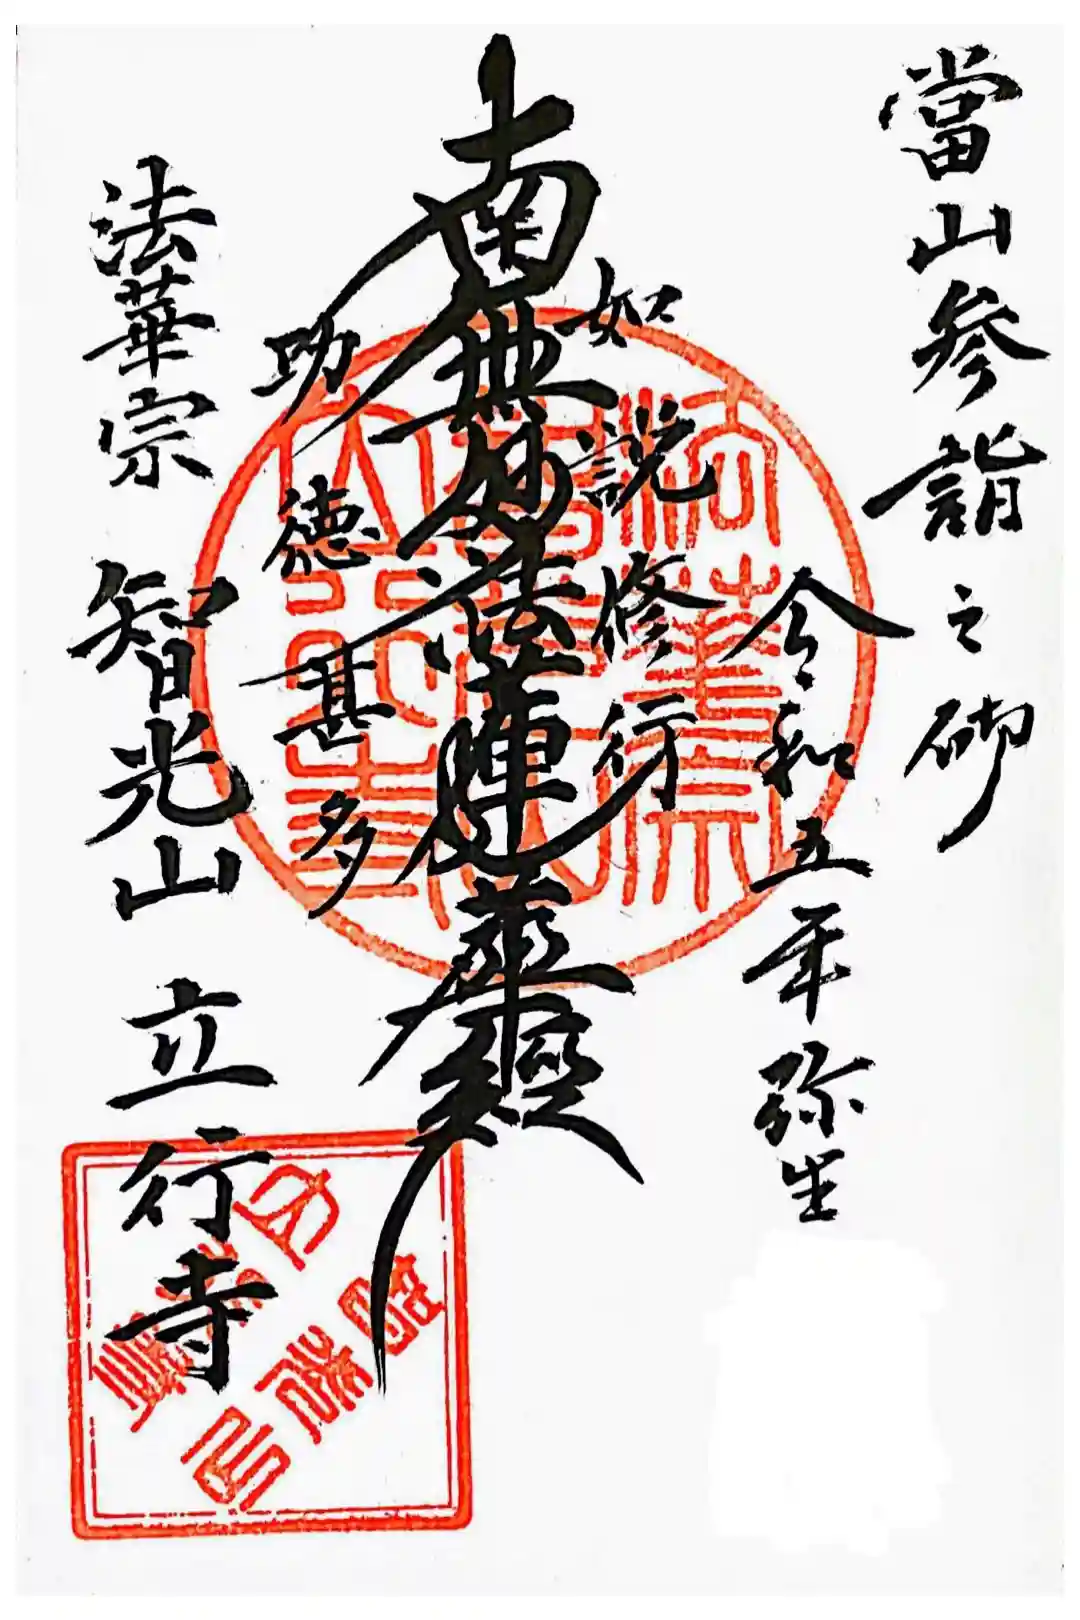 當山参詣之砌
令和五年弥生
如説修行
南無妙法蓮華経
功徳甚多
法華宗 智光山 立行寺